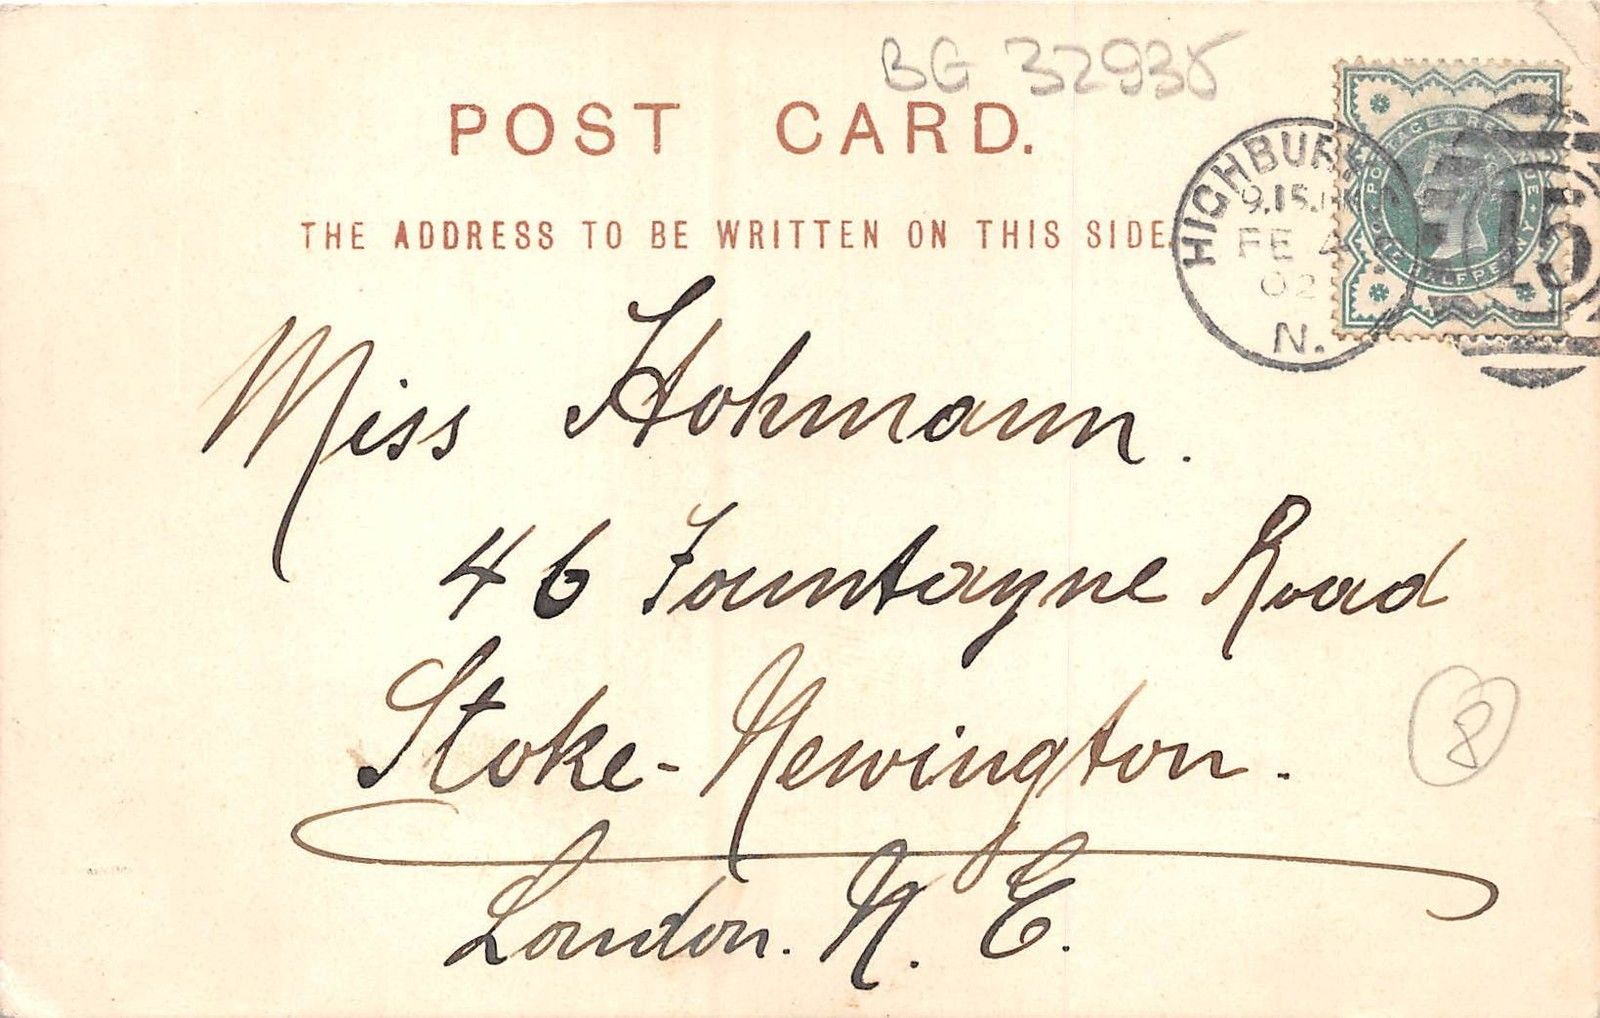 BG 32938
POST CARD.
THE ADDRESS TO BE WRITTEN ON THIS SIDE
HIGHBURY
9.15.
FE 4
02
N.
15
Miss Hohmann.
46 Fountayne Road
Stoke-Newington.
London. N. E.
8